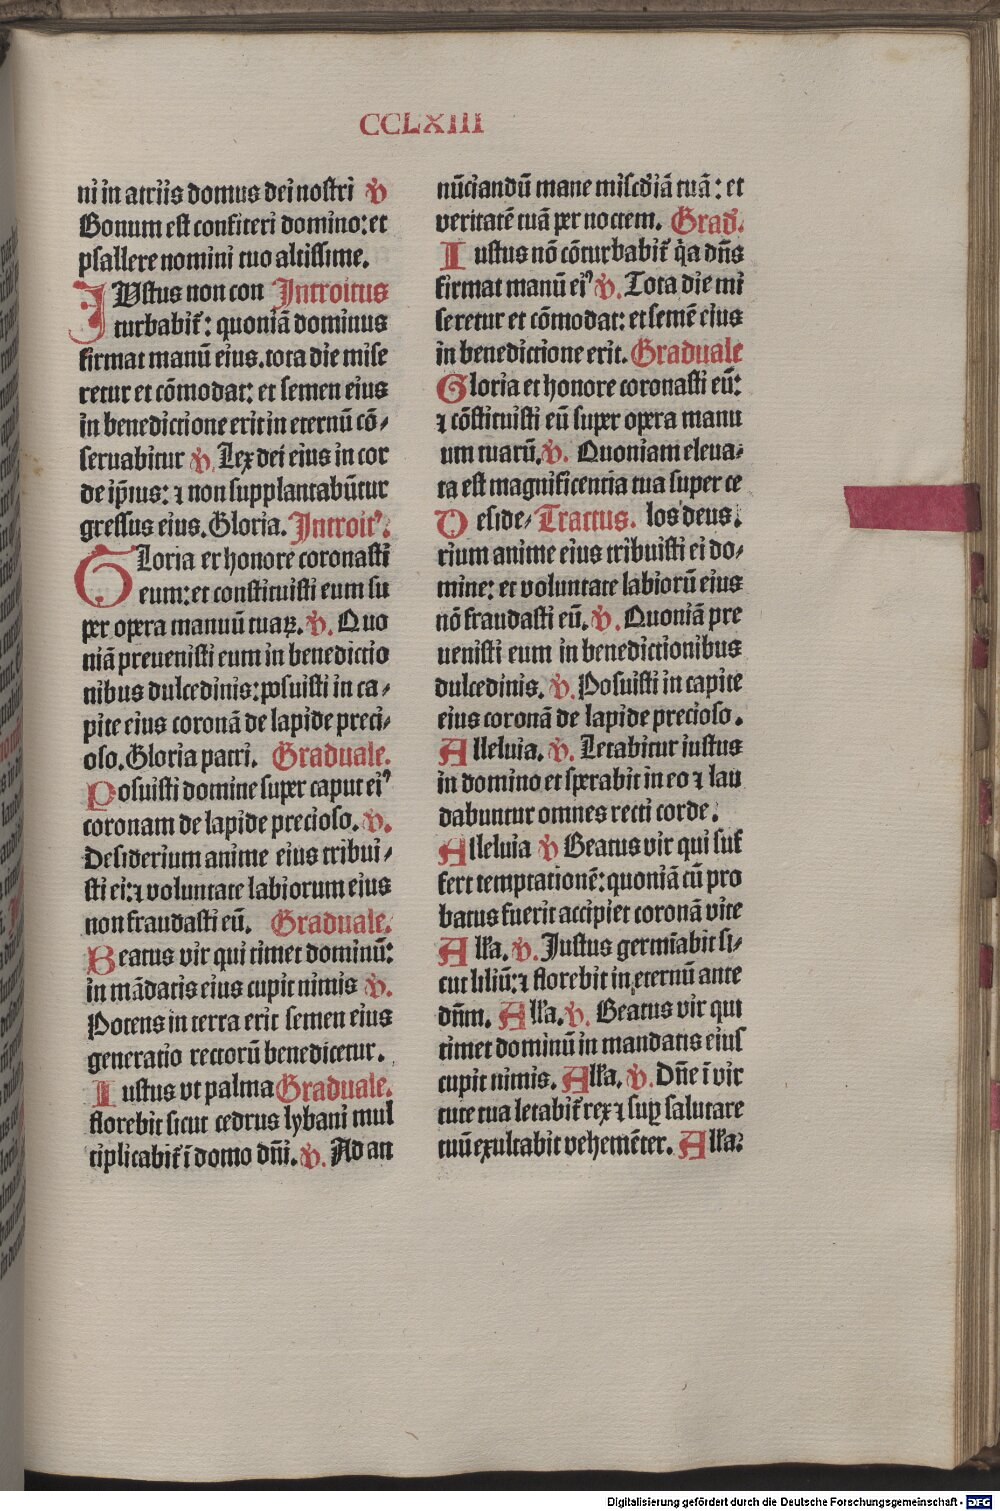 CCLXIII
ni in atriis domus dei nostri ℣
Bonum est confiteri domino: et
psallere nomini tuo altissime.
IUstus non con Introitus
turbabit̃: quoniã dominus
firmat manũ eius. tota die mise
retur et cõmodat: et semen eius
in benedictione erit in eternũ cõ-
seruabitur ℣. Lex dei eius in cor
de ip̃ius: ⁊ non supplantabũtur
gressus eius. Gloria. Introitꝰ.
GLoria et honore coronasti
eum: et constituisti eum su
per opera manuũ tuaꝝ. ℣. Quo
niã preuenisti eum in benedictio
nibus dulcedinis: posuisti in ca-
pite eius coronã de lapide preci-
oso. Gloria patri. Graduale.
Posuisti domine super caput eiꝰ
coronam de lapide precioso. ℣.
Desiderium anime eius tribui-
sti ei: ⁊ voluntate labiorum eius
non fraudasti eũ. Graduale.
Beatus vir qui timet dominũ:
in mãdatis eius cupit nimis ℣.
Potens in terra erit semen eius
generatio rectorũ benedicetur.
Iustus vt palma Graduale.
florebit sicut cedrus lybani mul
tiplicabit̃ ĩ domo dñi. ℣. Ad an
nũciandũ mane miscd̃iã tuã: et
veritatẽ tuã per noctem. Grad̃.
Iustus nõ cõturbabit̃ q̃a dñs
firmat manũ eiꝰ ℣. Tota die mi
seretur et cõmodat: et semẽ eius
in benedictione erit. Graduale
Gloria et honore coronasti eũ:
⁊ cõstituisti eũ super opera manu
um tuarũ. ℣. Quoniam eleua-
ta est magnificentia tua super ce
Deside- Tractus. los deus.
rium anime eius tribuisti ei do-
mine: et voluntate labiorũ eius
nõ fraudasti eũ. ℣. Quoniã pre
uenisti eum in benedictionibus
dulcedinis. ℣. Posuisti in capite
eius coronã de lapide precioso.
Alleluia. ℣. Letabitur iustus
in domino et sperabit in eo ⁊ lau
dabuntur omnes recti corde.
Alleluia ℣ Beatus vir qui suf
fert temptationẽ: quoniã cũ pro
batus fuerit accipiet coronã vite
All'a. ℣. Justus germĩabit si-
cut liliũ: ⁊ florebit in eternũ ante
dñm. All'a. ℣. Beatus vir qui
timet dominũ in mandatis eius
cupit nimis. All'a. ℣. Dñe ĩ vir
tute tua letabit̃ rex ⁊ suꝑ salutare
tuũ exultabit vehemẽter. All'a:
Digitalisierung gefördert durch die Deutsche Forschungsgemeinschaft - DFG